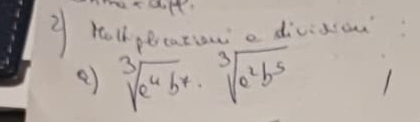 2) Moltiplicazioni e divisioni :
a) ∛(a⁴b⁷) · ∛(a²b⁵)